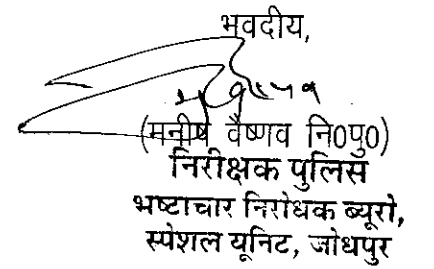 भवदीय,
(मनीष वैष्णव नि0पु0)
निरीक्षक पुलिस
भष्टाचार निरोधक ब्यूरो,
स्पेशल यूनिट, जोधपुर